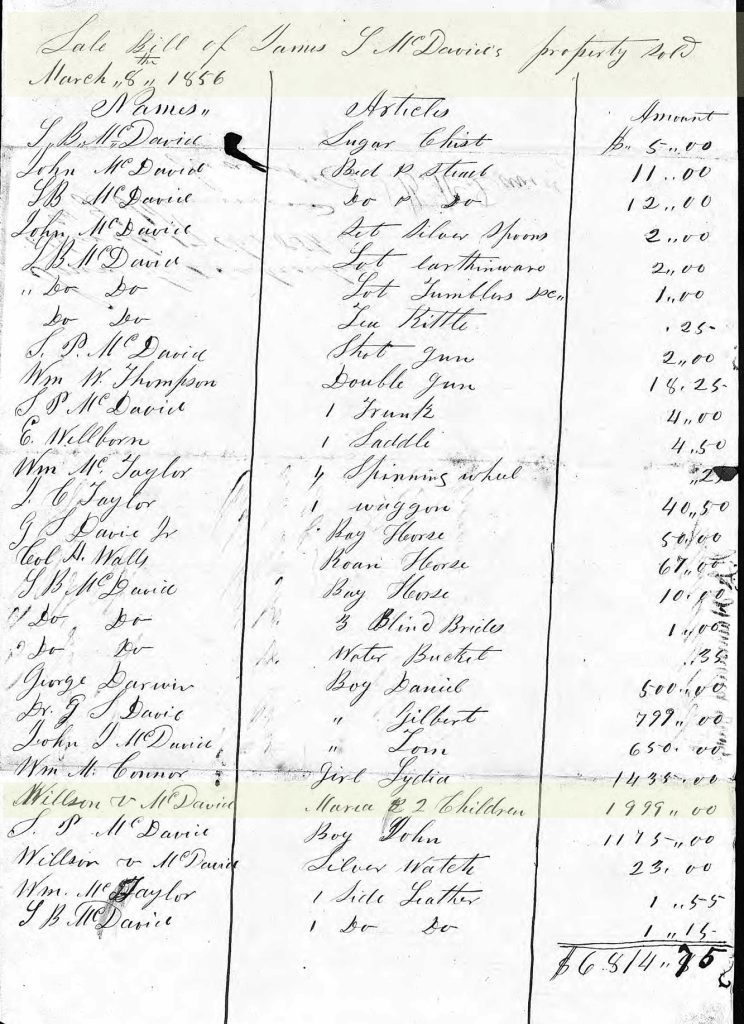 Sale Bill of James S McDavid's property sold
March "8th" 1856
Names " Articles Amount
S. B. McDavid Sugar Chist $ 5"00
John McDavid Bed & Stead 11"00
SB McDavid Do & Do 12"00
John McDavid Set Silver Spoons 2"00
S B McDavid Lot earthinware 2"00
" Do Do Lot Tumblers &c" 1"00
Do Do Tea Kittle .25
S. P. McDavid Shot Gun 2"00
Wm W. Thompson Double Gun 18.25
S P McDavid 1 Trunk 4"00
E. Wellborn 1 Saddle 4.50
Wm Mc Taylor 4 Spinning wheel "25
J. C Taylor 1 waggon 40"50
G S Davie Jr Bay Horse 50.00
Col A. Walls Roan Horse 67"00
S B McDavid Bay Horse 10.00
" Do Do 3 Blind Brides 1"00
" Do Do Water Bucket .35
George Darwin Boy Daniel 500"00
Dr. G S Davie " Gilbert 799"00
John J McDavid " Tom 650.00
Wm M. Connor Girl Lydia 1435.00
Willson & McDavid Maria & 2 Children 1999"00
S. P. McDavid Boy John 1175"00
Willson & McDavid Silver Watch 23.00
Wm. Mc Taylor 1 Side Leather 1"55
S B McDavid 1 Do Do 1"15
$6.814"75